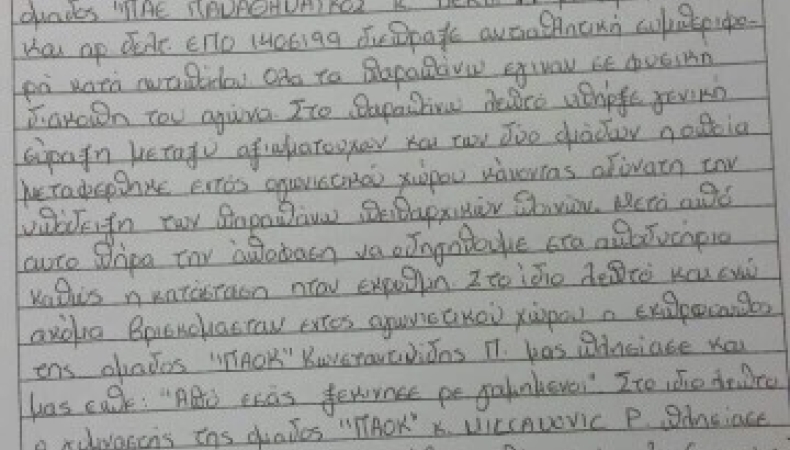 ομαδος "ΠΑΕ ΠΑΝΑΘΗΝΑΙΚΟΣ Κ.
και αρ δελτ. ΕΠΟ 1406199 διεπραξε αντιαθλητική συμπεριφο-
ρά κατά αντιπάλου Ολα τα παραπάνω εγιναν σε φυσική
διακοπη του αγώνα. Στο παραπάνω λεπτό υπήρξε γενική
σύραξη μεταξυ αξιωματουχων και των δύο ομάδων η οποία
μεταφερθηκε εντός αγωνιστικού χώρου κάνοντας αδύνατη την
υπόδειξη των παραπάνω πειθαρχικών ποινών. Μετά από
αυτο πήρα την απόφαση να οδηγηθουμε στα αποδυτήρια
καθώς η κατάσταση ηταν εκρυθμη. Στο ίδιο λεπτό και ενώ
ακόμα βρισκομασταν εντος αγωνιστικού χώρου ο εκπροσωπος
της ομαδος "ΠΑΟΚ" Κωνσταντινίδης Π. μας πλησίασε και
μας ειπε: "Από εσάς ξεκινησε ρε γαμημενοι" Στο ιδιο λεπτο
της ομαδος "ΠΑΟΚ" κ. P. πλησίασε